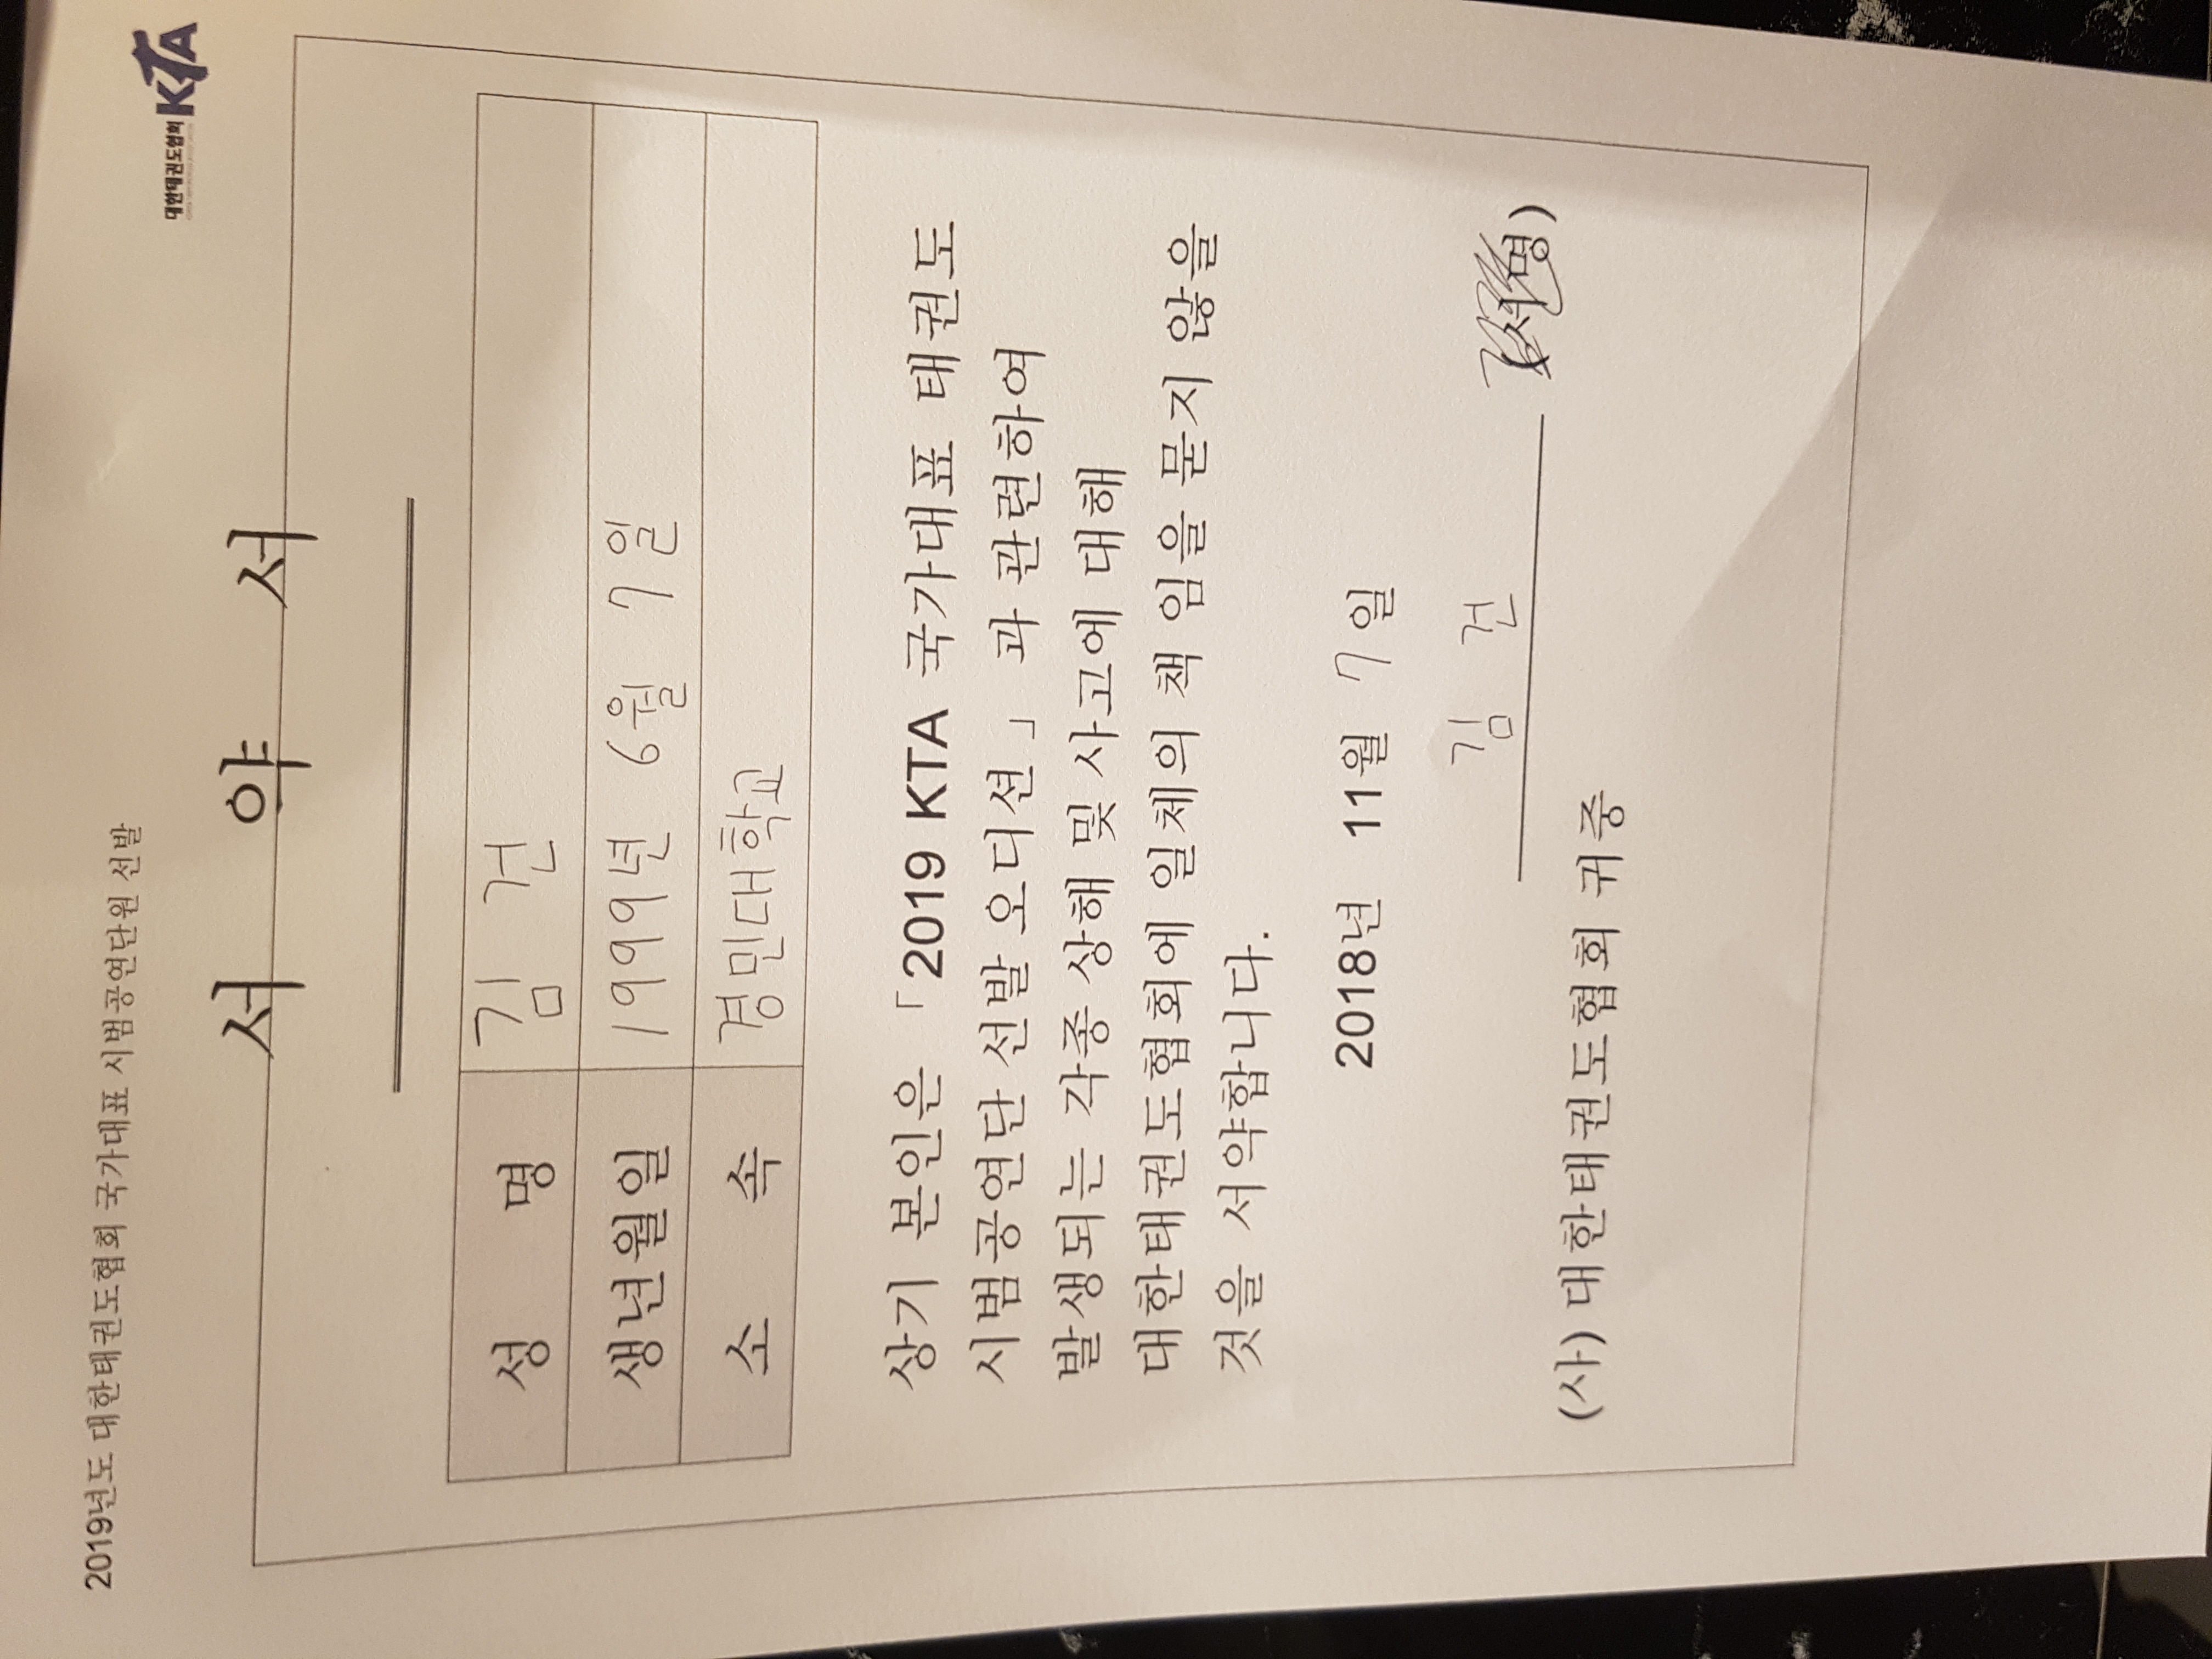 2019년도 대한태권도협회 국가대표 시범공연단원 선발
대한태권도협회 KTA
서 약 서
성 명 김 건
생년월일 1999년 6월 7일
소 속 경민대학교
상기 본인은 「2019 KTA 국가대표 태권도
시범공연단 선발 오디션」 과 관련하여
발생되는 각종 상해 및 사고에 대해
대한태권도협회에 일체의 책 임을 묻지 않을
것을 서약합니다.
2018년 11월 7일
김 건 (서명)
(사) 대한태권도협회 귀중